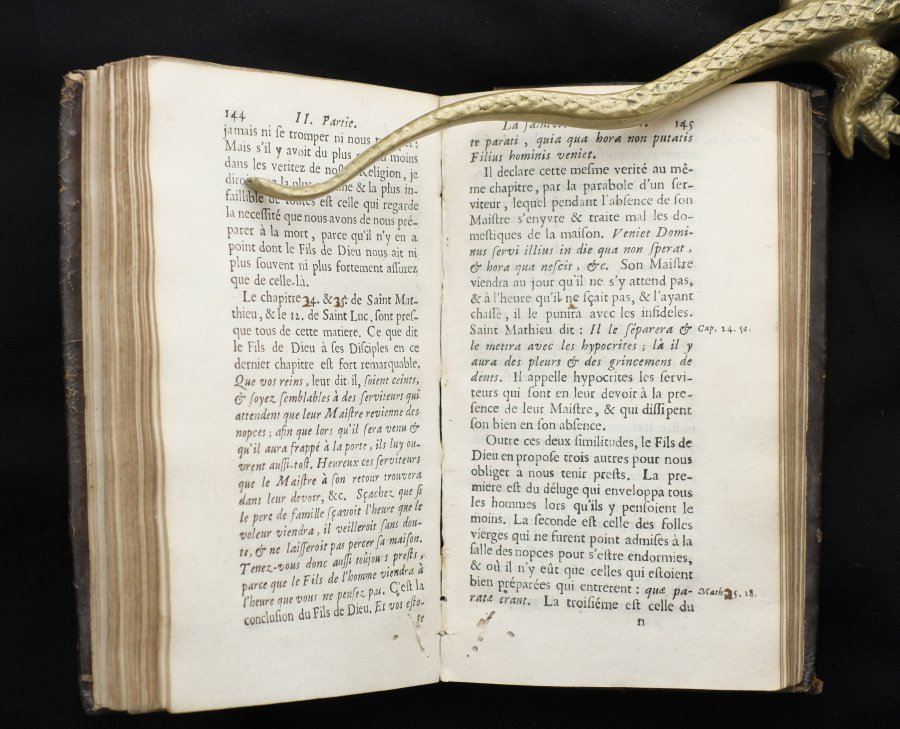 144 II. Partie.
jamais ni ſe tromper ni nous
Mais s'il y avoit du plus moins
dans les veritez de Religion, je
la & la plus in-
faillible de toutes eſt celle qui regarde
la neceſſité que nous avons de nous pré-
parer à la mort, parce qu'il n'y en a
point dont le Fils de Dieu nous ait ni
plus ſouvent ni plus fortement aſſurez
que de celle-là.
Le chapitre 24. & 25. de Saint Mat-
thieu, & le 12. de Saint Luc, ſont preſ-
que tous de cette matiere. Ce que dit
le Fils de Dieu à ſes Diſciples en ce
dernier chapitre eſt fort remarquable,
Que vos reins, leur dit il, ſoient ceints,
& ſoyez ſemblables à des ſerviteurs qui
attendent que leur Maiſtre revienne des
nopces; afin que lors qu'il ſera venu &
qu'il aura frappé à la porte, ils luy ou-
vrent auſſi-toſt. Heureux ces ſerviteurs
que le Maiſtre à ſon retour trouvera
dans leur devoir, &c. Sçachez que ſi
le pere de famille ſçavoit l'heure que le
voleur viendra, il veilleroit ſans dou-
te, & ne laiſſeroit pas percer ſa maiſon.
Tenez-vous donc auſſi toûjours preſts,
parce que le Fils de l'homme viendra à
l'heure que vous ne penſez pas. C'eſt la
concluſion du Fils de Dieu. Et vos eſto-
te
La 145
te parati, quia qua hora non putatis
Filius hominis veniet.
Il declare cette meſme verité au mê-
me chapitre, par la parabole d'un ſer-
viteur, lequel pendant l'abſence de ſon
Maiſtre s'enyvre & traite mal les do-
meſtiques de la maiſon. Veniet Domi-
nus ſervi illius in die qua non ſperat,
& hora qua neſcit, &c. Son Maiſtre
viendra au jour qu'il ne s'y attend pas,
& à l'heure qu'il ne ſçait pas, & l'ayant
chaſſé, il le punira avec les infideles.
Saint Mathieu dit : Il le ſéparera & Cap. 24. 51.
le mettra avec les hypocrites ; là il y
aura des pleurs & des grincemens de
dents. Il appelle hypocrites les ſervi-
teurs qui ſont en leur devoir à la pre-
ſence de leur Maiſtre, & qui diſſipent
ſon bien en ſon abſence.
Outre ces deux ſimilitudes, le Fils de
Dieu en propoſe trois autres pour nous
obliger à nous tenir preſts. La pre-
miere eſt du déluge qui enveloppa tous
les hommes lors qu'ils y penſoient le
moins. La ſeconde eſt celle des folles
vierges qui ne furent point admiſes à la
ſalle des nopces pour s'eſtre endormies,
& où il n'y eût que celles qui eſtoient
bien préparées qui entrerent : quæ pa- Math 25. 18.
ratæ erant. La troiſiéme eſt celle du
n